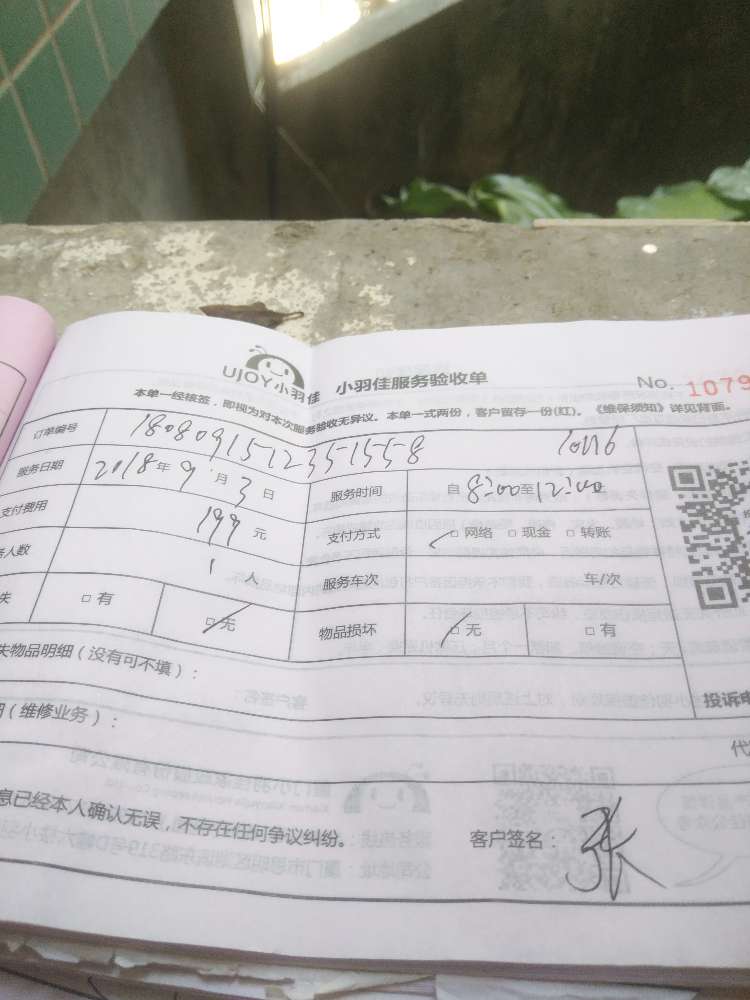 UJOY小羽佳 小羽佳服务验收单 No. 1079
本单一经核签，即视为对本次服务验收无异议。本单一式两份，客户留存一份(红)。《维保须知》详见背面。
订单编号 1808091512351558
服务日期 2018年9月3日 服务时间 自8:00至12:00
支付费用 199元 支付方式 □网络 □现金 □转账
人数 1人 服务车次 车/次
失 □有 □无 物品损坏 □无 □有
失物品明细（没有可不填）：
（维修业务）： 投诉电
代
息已经本人确认无误，不存在任何争议纠纷。 客户签名：张